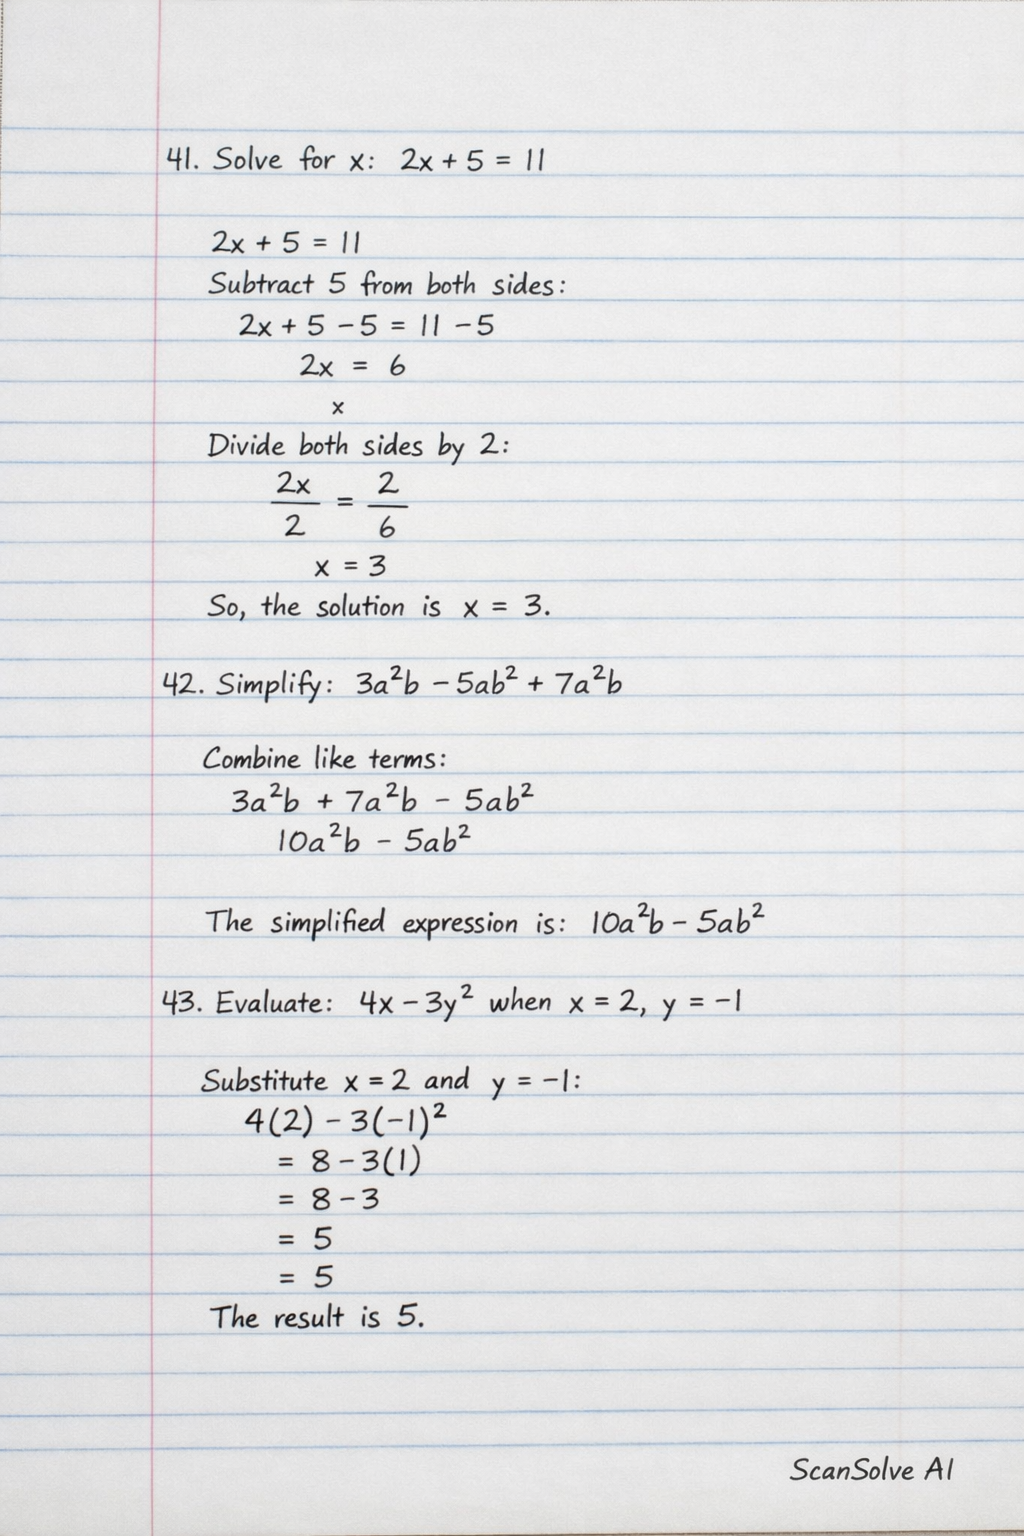 41. Solve for x: 2x + 5 = 11
2x + 5 = 11
Subtract 5 from both sides:
2x + 5 - 5 = 11 - 5
2x = 6
x
Divide both sides by 2:
2x/2 = 2/6
x = 3
So, the solution is x = 3.
42. Simplify: 3a²b - 5ab² + 7a²b
Combine like terms:
3a²b + 7a²b - 5ab²
10a²b - 5ab²
The simplified expression is: 10a²b - 5ab²
43. Evaluate: 4x - 3y² when x = 2, y = -1
Substitute x = 2 and y = -1:
4(2) - 3(-1)²
= 8 - 3(1)
= 8 - 3
= 5
= 5
The result is 5.
ScanSolve AI